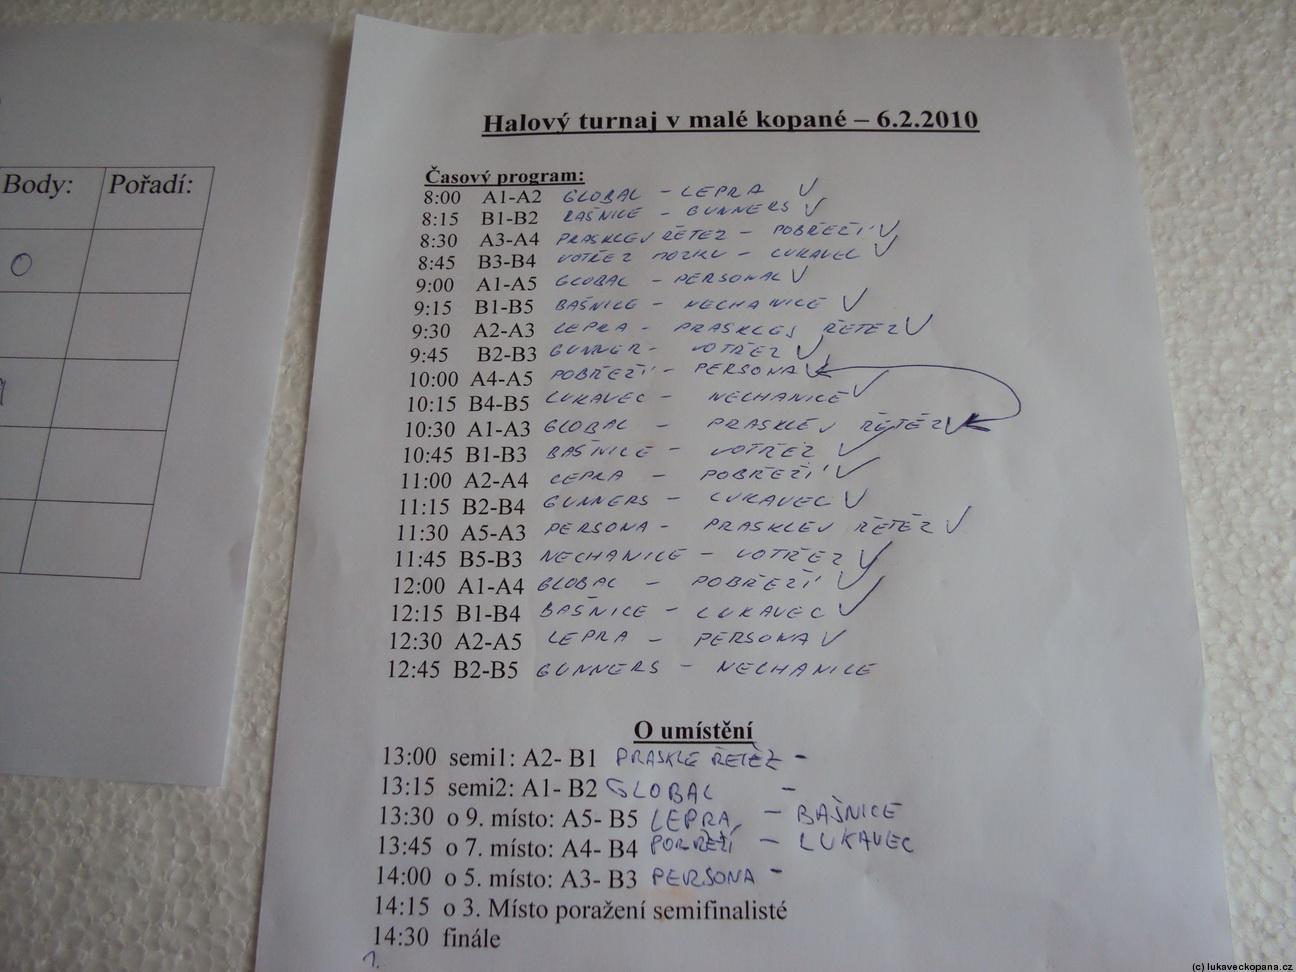 Body: Pořadí:
O
Halový turnaj v malé kopané – 6.2.2010
Časový program:
8:00 A1-A2 GLOBAL - LEPRA ✓
8:15 B1-B2 BAŠNICE - GUNNERS ✓
8:30 A3-A4 PRASKLEJ ŘETEZ - POBŘEŽÍ ✓
8:45 B3-B4 VOTŘEZ MOZKU - LUKAVEC ✓
9:00 A1-A5 GLOBAL - PERSONAL ✓
9:15 B1-B5 BAŠNICE - NECHANICE ✓
9:30 A2-A3 LEPRA - PRASKLEJ ŘETEZ ✓
9:45 B2-B3 GUNNER - VOTŘEZ ✓
10:00 A4-A5 POBŘEŽÍ - PERSONA ✓
10:15 B4-B5 LUKAVEC - NECHANICE ✓
10:30 A1-A3 GLOBAL - PRASKLEJ ŘETĚZ ✓
10:45 B1-B3 BAŠNICE - VOTŘEZ ✓
11:00 A2-A4 LEPRA - POBŘEŽÍ ✓
11:15 B2-B4 GUNNERS - LUKAVEC ✓
11:30 A5-A3 PERSONA - PRASKLEJ ŘETĚZ ✓
11:45 B5-B3 NECHANICE - VOTŘEZ ✓
12:00 A1-A4 GLOBAL - POBŘEŽÍ ✓
12:15 B1-B4 BAŠNICE - LUKAVEC ✓
12:30 A2-A5 LEPRA - PERSONA ✓
12:45 B2-B5 GUNNERS - NECHANICE
O umístění
13:00 semi1: A2- B1 PRASKLE ŘETĚZ -
13:15 semi2: A1- B2 GLOBAL -
13:30 o 9. místo: A5- B5 LEPRA - BAŠNICE
13:45 o 7. místo: A4- B4 POBŘEŽÍ - LUKAVEC
14:00 o 5. místo: A3- B3 PERSONA -
14:15 o 3. Místo poražení semifinalisté
14:30 finále
1.
(c) lukaveckopana.cz